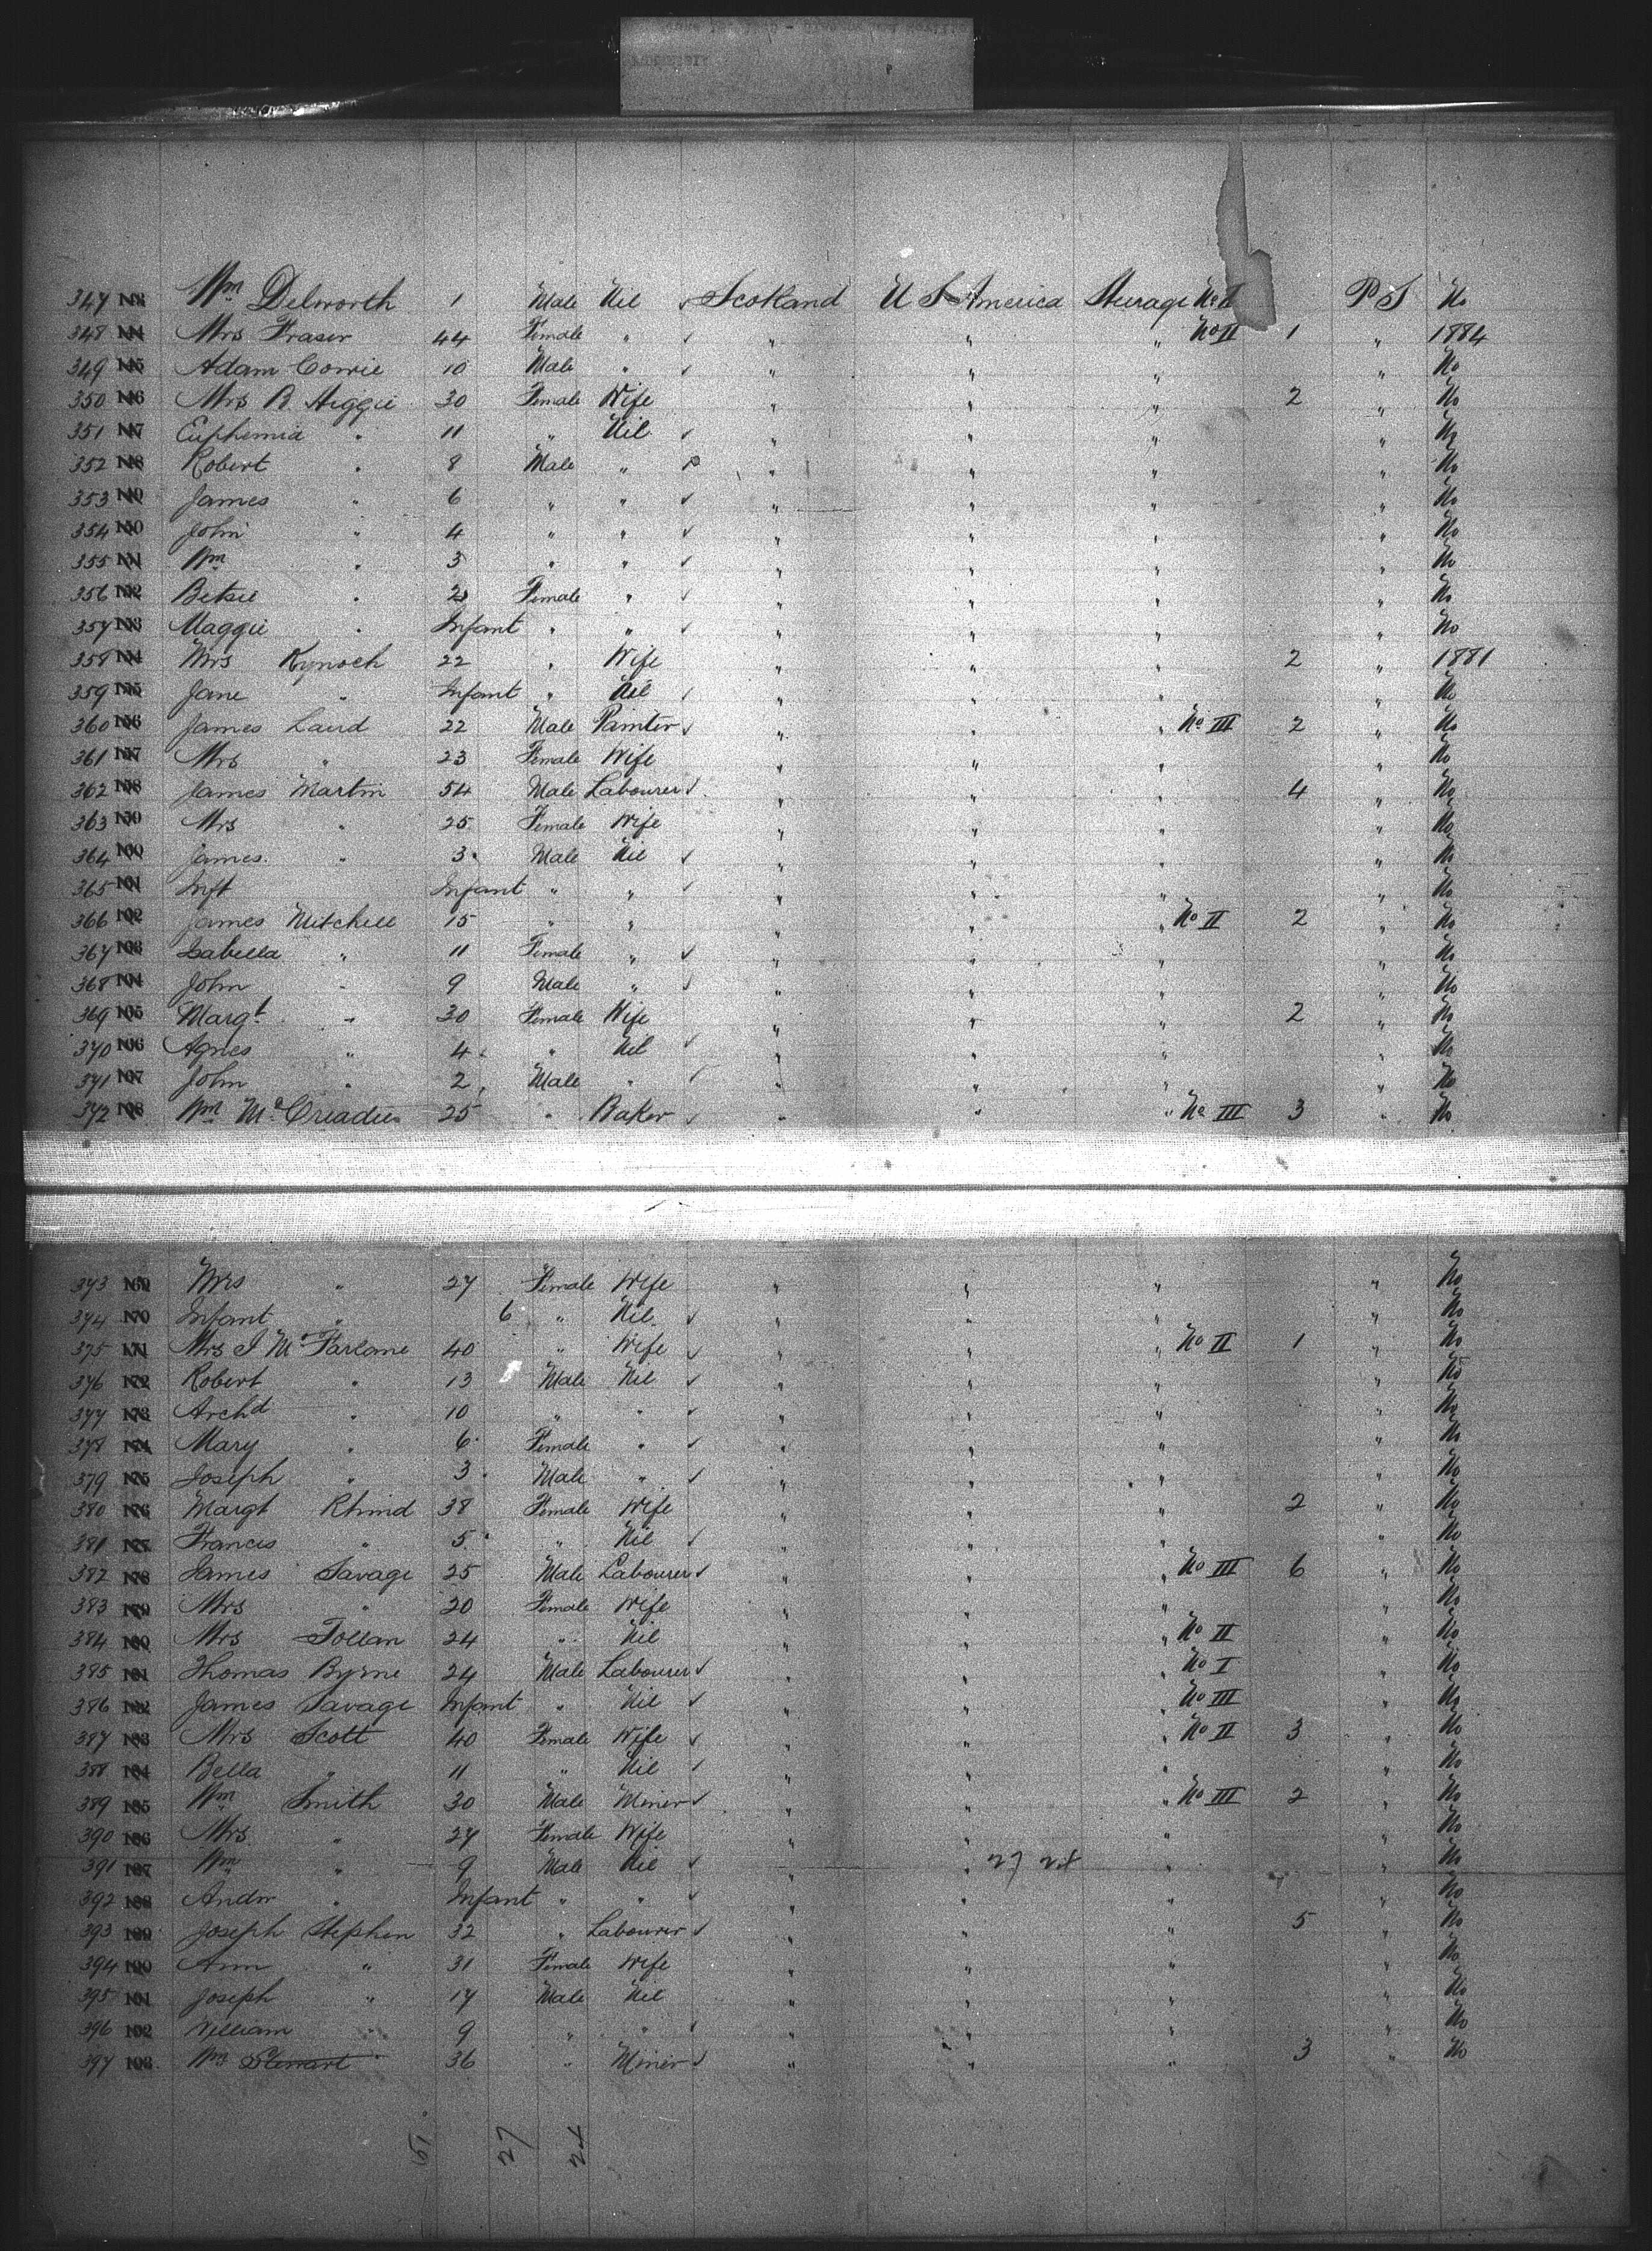 347 143 Wm Delworth 1 Male Nil ✓ Scotland U S America Steerage No II P S No
348 144 Mrs Fraser 44 Female " ✓ " " " No II 1 " 1884
349 145 Adam Cowie 10 Male " ✓ " " " " No
350 146 Mrs R Heggie 30 Female Wife " " " 2 " No
351 147 Euphemia " 11 " Nil ✓ " " " " No
352 148 Robert " 8 Male " " " " " No
353 149 James " 6 " " ✓ " " " " No
354 150 John " 4 " " ✓ " " " " No
355 151 Wm " 3 " " ✓ " " " " No
356 152 Betsie " 2 Female " ✓ " " " " No
357 153 Maggie " Infant " " ✓ " " " " No
358 154 Mrs Kynoch 22 " Wife " " " 2 " 1881
359 155 Jane " Infant " Nil ✓ " " " " No
360 156 James Laird 22 Male Painter ✓ " " " No III 2 " No
361 157 Mrs " 23 Female Wife " " " " No
362 158 James Martin 54 Male Labourer ✓ " " " 4 " No
363 159 Mrs " 25 Female Wife " " " " No
364 160 James " 3 Male Nil ✓ " " " " No
365 161 Inft Infant " " ✓ " " " " No
366 162 James Mitchell 15 " " " " " No II 2 " No
367 163 Isabella " 11 Female " ✓ " " " " No
368 164 John " 9 Male " ✓ " " " " No
369 165 Margt " 30 Female Wife " " " 2 " No
370 166 Agnes " 4 " Nil ✓ " " " " No
371 167 John " 2 Male " ✓ " " " " No
372 168 Wm McCreadie 25 " Baker ✓ " " " No III 3 " No
373 169 Mrs " 27 Female Wife " " " No
374 170 Infant " 6 " Nil ✓ " " " " No
375 171 Mrs J McFarlane 40 " Wife ✓ " " " No II 1 " No
376 172 Robert " 13 Male Nil ✓ " " " " No
377 173 Archd " 10 " " ✓ " " " " No
378 174 Mary " 6 Female " ✓ " " " " No
379 175 Joseph " 3 Male " ✓ " " " " No
380 176 Margt Rhind 38 Female Wife " " " 2 " No
381 177 Francis " 5 " Nil ✓ " " " " No
382 178 James Savage 25 Male Labourer ✓ " " " No III 6 " No
383 179 Mrs " 20 Female Wife " " " " No
384 180 Mrs Tollan 24 " Nil " " " No II " No
385 181 Thomas Byrne 24 Male Labourer ✓ " " " No I " No
386 182 James Savage Infant " Nil ✓ " " No III " No
387 183 Mrs Scott 40 Female Wife ✓ " " " No II 3 " No
388 184 Bella " 11 " Nil ✓ " " " " No
389 185 Wm Smith 30 Male Miner ✓ " " " No III 2 " No
390 186 Mrs " 27 Female Wife " " " " No
391 187 Wm " 9 Male Nil ✓ " " 27 24 " " No
392 188 Andw " Infant " " ✓ " " " " No
393 189 Joseph Stephen 32 " Labourer ✓ " " " 5 " No
394 190 Ann " 31 Female Wife " " " " No
395 191 Joseph " 17 Male Nil " " " " No
396 192 William " 9 " " ✓ " " " " No
397 193 Wm Stewart 36 " Miner ✓ " " " 3 " No
51 27 24